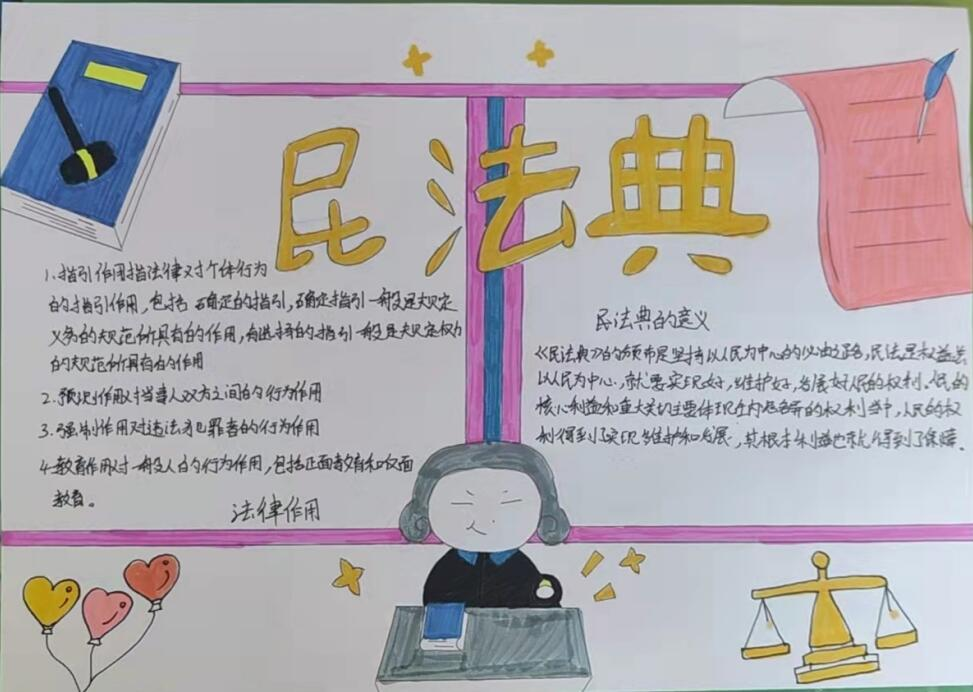 民法典
1、指引作用指法律对个体行为
的指引作用，包括 确定的指引，确定指引一般是规定
义务的规范所具有的作用，有选择的指引一般是规定权力
的规范所具有的作用
2、预测作用对当事人双方之间的行为作用
3、强制作用对违法犯罪者的行为作用
4、教育作用对一般人的行为作用，包括正面教育和反面
教育。
法律作用
民法典的意义
《民法典》的颁布是坚持以人民为中心的必由之路，民法是权益
以人民为中心，就要实现好，维护好，发展好人民的权利、民的
核心利益和重大关切主要体现在内容各异的权利当中，人民的权
利得到了实现维护和发展，其根本利益也就得到了保障。